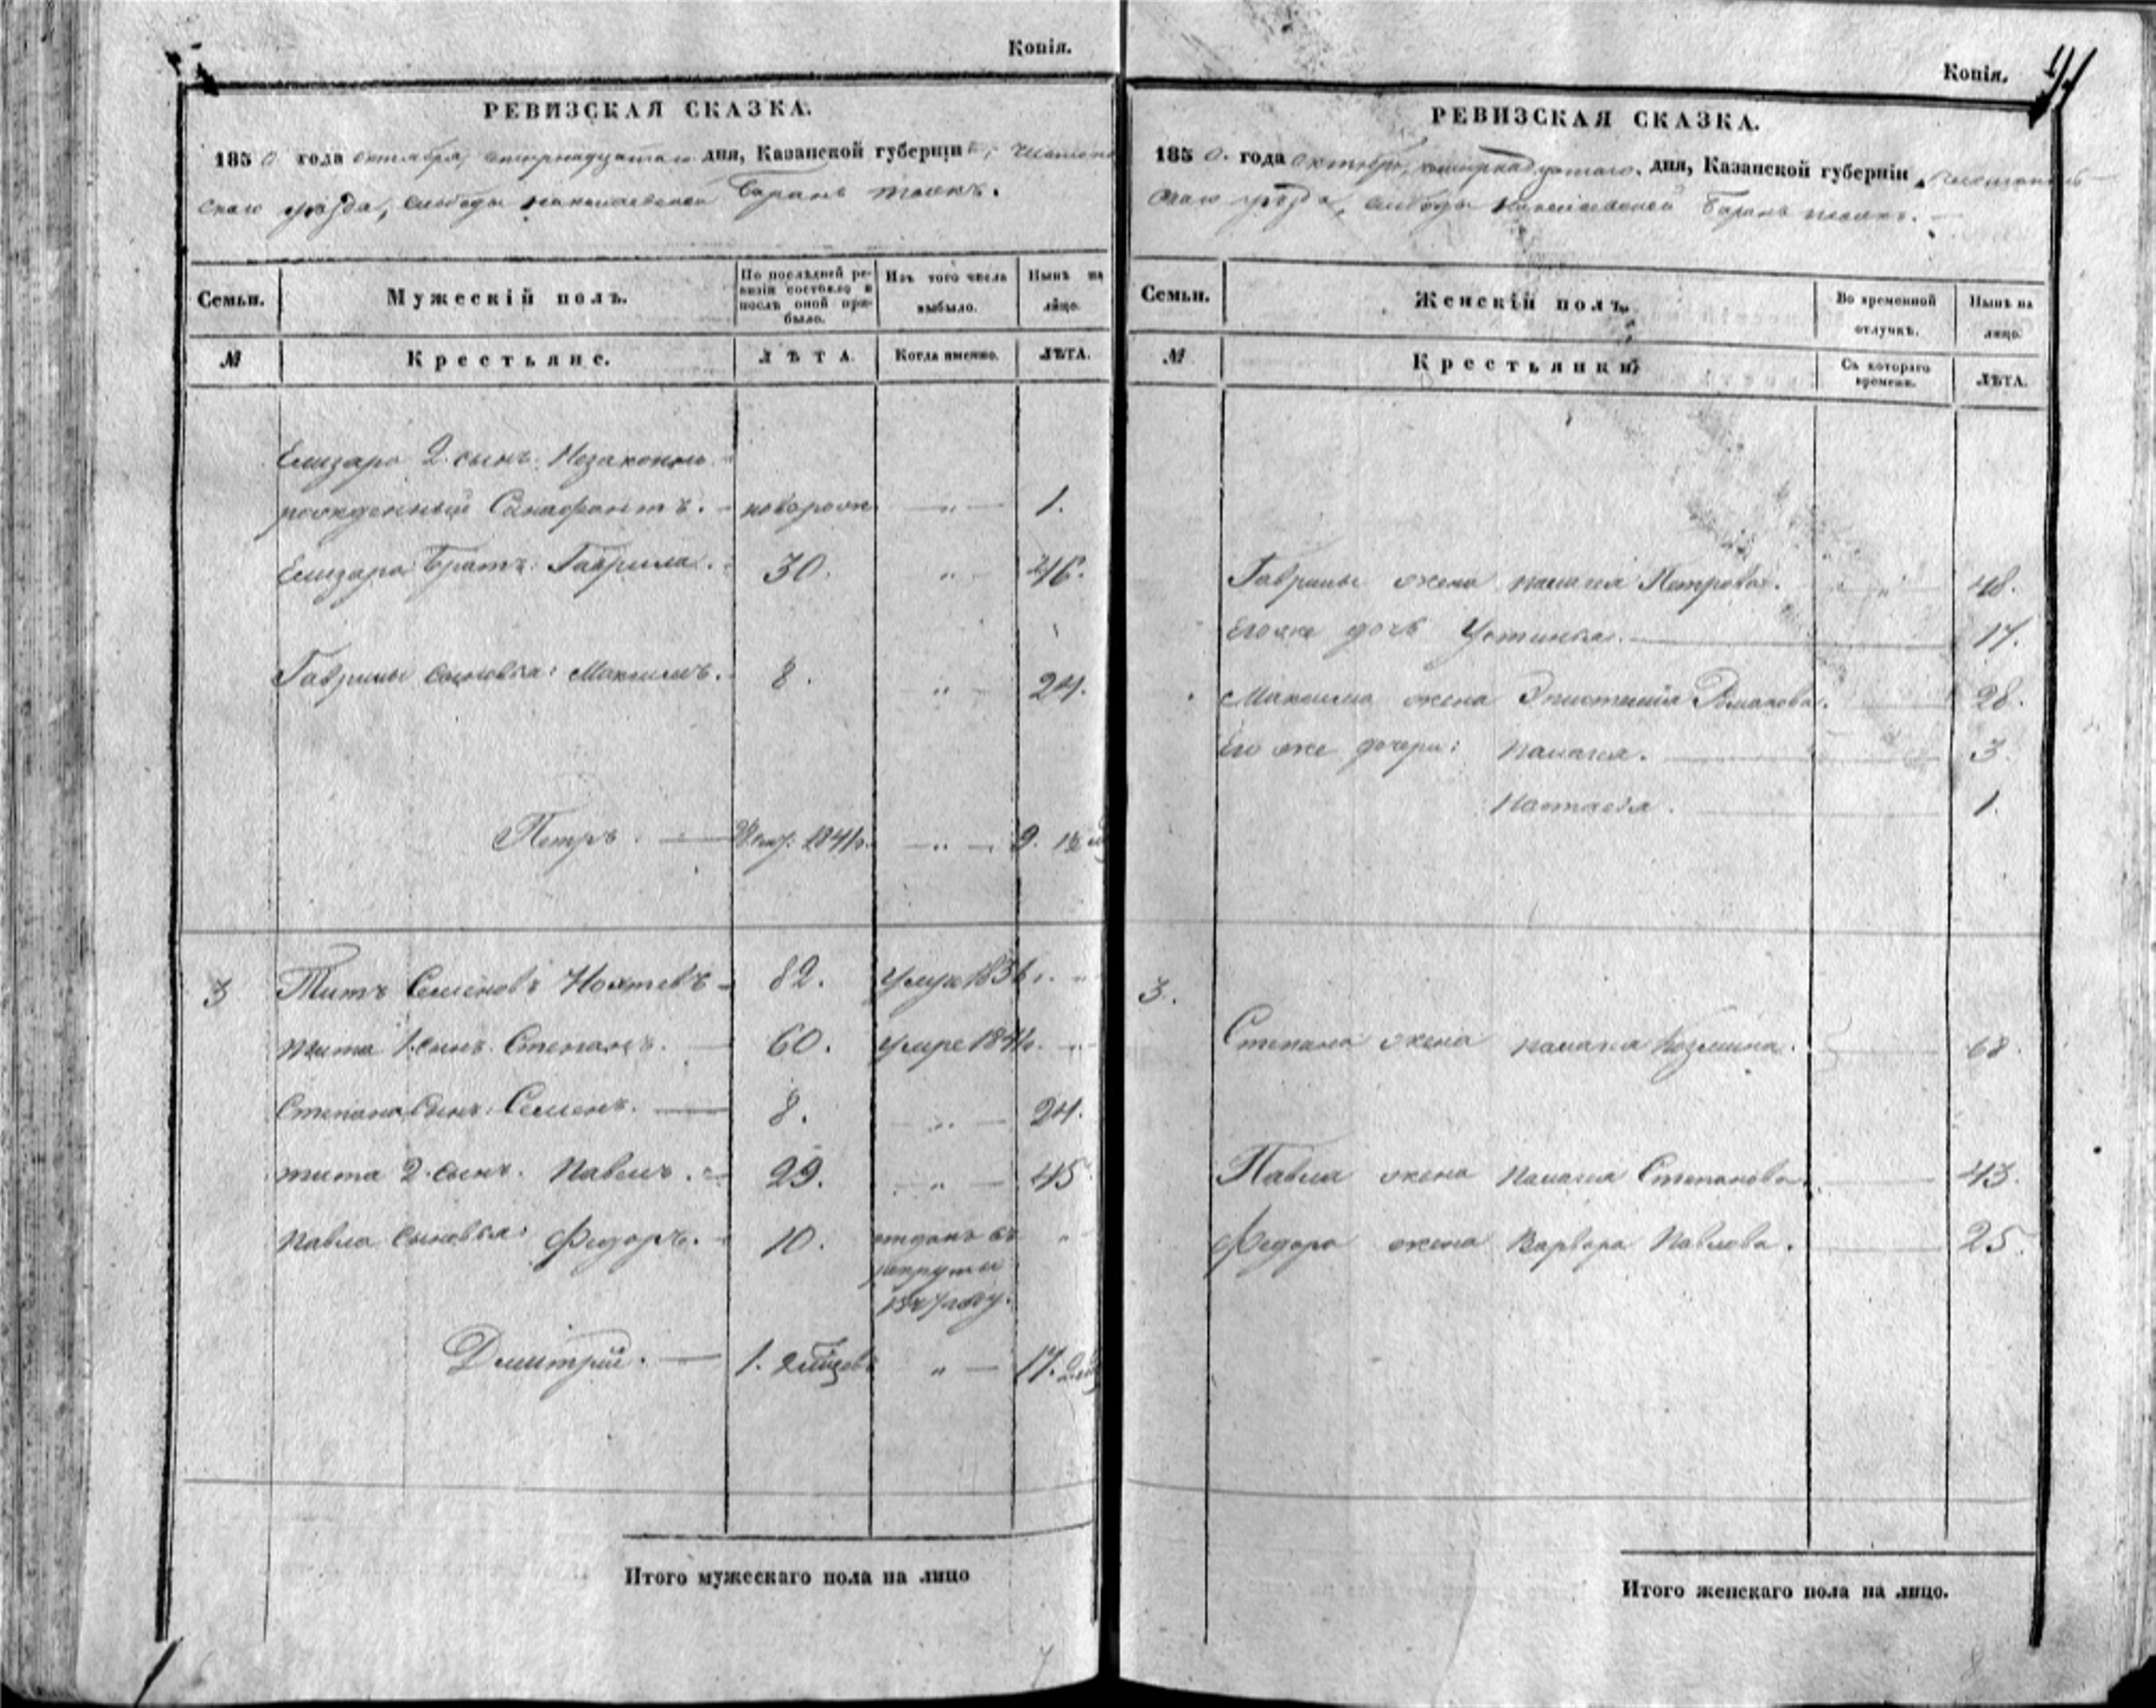 Копія.
РЕВИЗСКАЯ СКАЗКА.
1850 года октября, четырнадцатаго дня, Казанской губерніи,
скаго уѣзда, слободы Баранъ тожъ.
Семьи.
Мужескій полъ.
По послѣдней ревизіи состояло и послѣ оной прибыло.
Изъ того числа выбыло.
Нынѣ на лицо.
№
Крестьяне.
ЛѢТА.
Когда именно.
ЛѢТА.
Елизара 2. сынъ. Незаконно
рожденный новорож. " 1.
Елизара братъ Гаврила. 30. " 46.
Гаврилы сыновья: Максимъ. 8. " 24.
Петръ. 1841 г. " 9.
3 Титъ Семеновъ 82. умре 183
тита 1. сынъ. Степанъ. 60. умре 184
Степана сынъ. Семенъ. 8. " 24.
тита 2. сынъ. Павелъ. 29. " 45
Павла сыновья: Федоръ. 10. отданъ въ "
рекруты
1847 году.
Дмитрій. 1. " 17.
Итого мужескаго пола на лицо
Копія.
РЕВИЗСКАЯ СКАЗКА.
1850. года октября, четырнадцатаго, дня, Казанской губерніи,
скаго уѣзда, слободы Баранъ тожъ.
Семьи.
Женскій полъ.
Во временной отлучкѣ.
Нынѣ на лицо.
№
Крестьянки
Съ котораго времени.
ЛѢТА.
Гаврилы жена палагея Петрова. " 48.
Его же дочь Устинья. 17.
Максима жена Романова. 28.
Его же дочери: палагея. 3.
Настасья. 1.
3.
Степана жена палагея Козмина. 68.
Павла жена палагея Степанова. 43.
Федора жена Варвара Павлова. 25.
Итого женскаго пола на лицо.